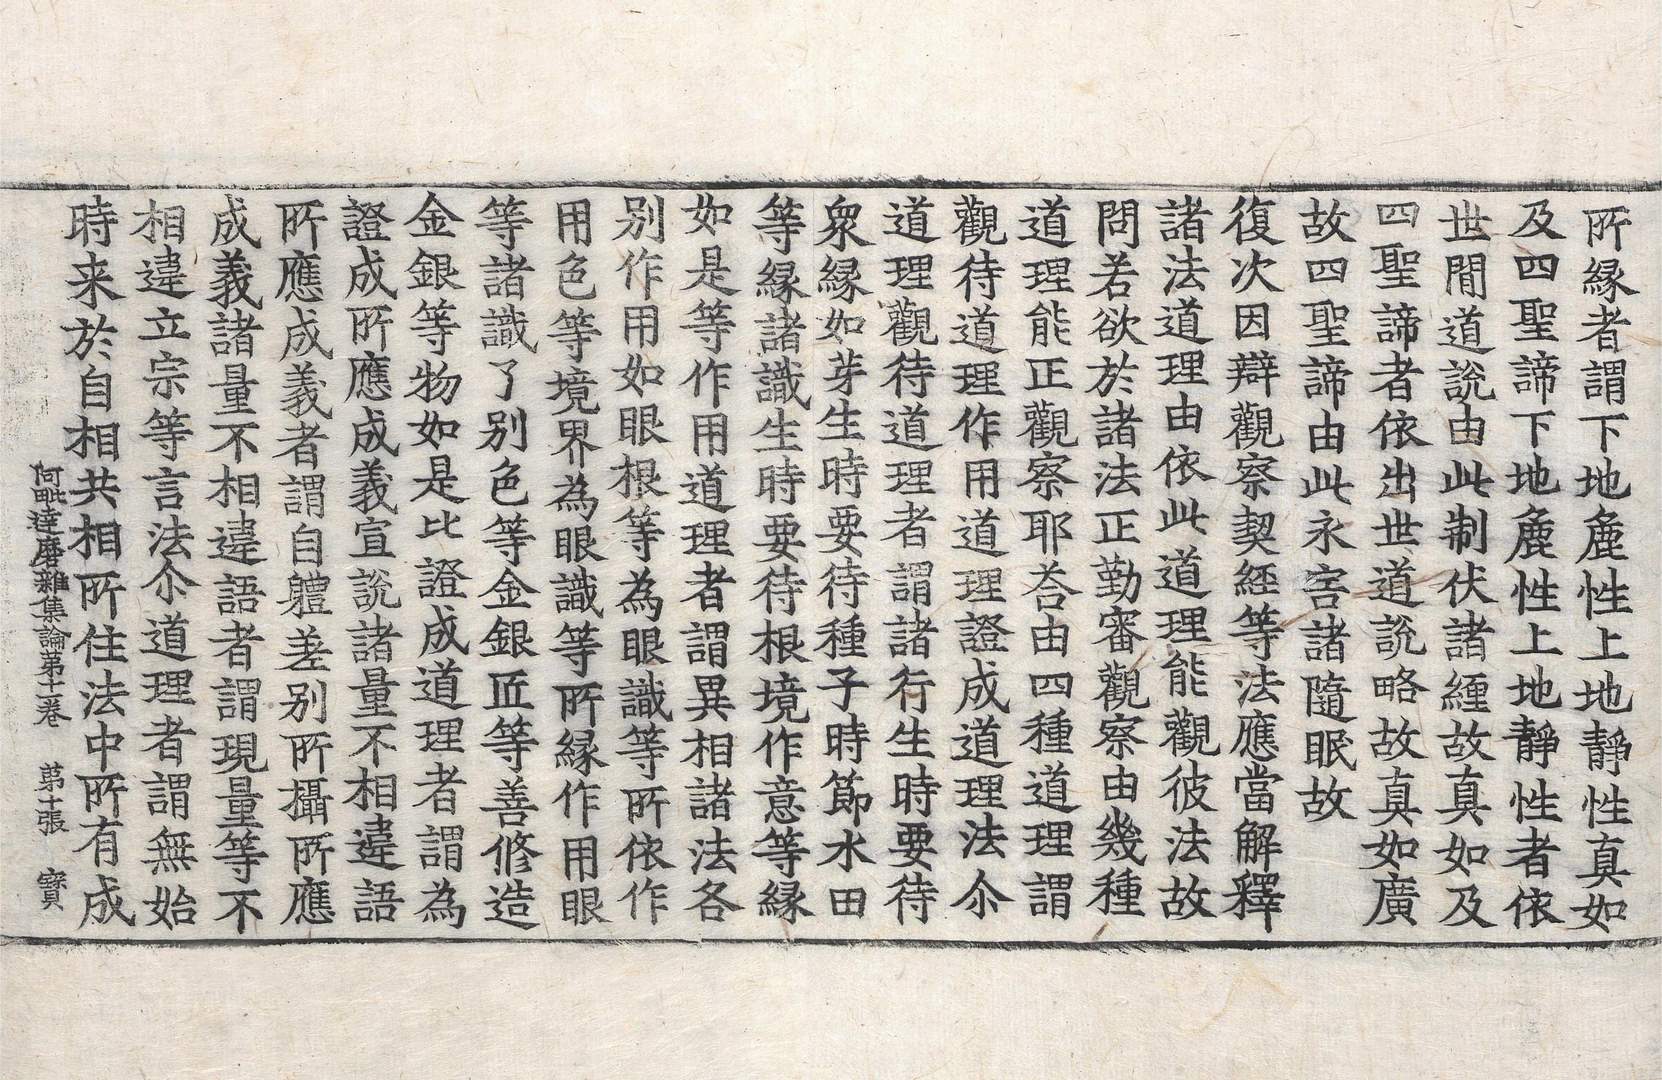 所縁者謂下地麁性上地靜性真如
及四聖諦下地麁性上地靜性者依
世間道說由此制伏諸纏故真如及
四聖諦者依出世道說略故真如廣
故四聖諦由此永害諸隨眠故
復次因辯觀察契經等法應當解釋
諸法道理由依此道理能觀彼法故
問若欲於諸法正勤審觀察由幾種
道理能正觀察耶荅由四種道理謂
觀待道理作用道理證成道理法尒
道理觀待道理者謂諸行生時要待
衆縁如芽生時要待種子時節水田
等縁諸識生時要待根境作意等縁
如是等作用道理者謂異相諸法各
别作用如眼根等為眼識等所依作
用色等境界為眼識等所縁作用眼
等諸識了别色等金銀匠等善修造
金銀等物如是比證成道理者謂為
證成所應成義宣說諸量不相違語
所應成義者謂自軆差别所攝所應
成義諸量不相違語者謂現量等不
相違立宗等言法尒道理者謂無始
時来於自相共相所住法中所有成
阿毗達磨雜集論第十一卷 第十張 寳